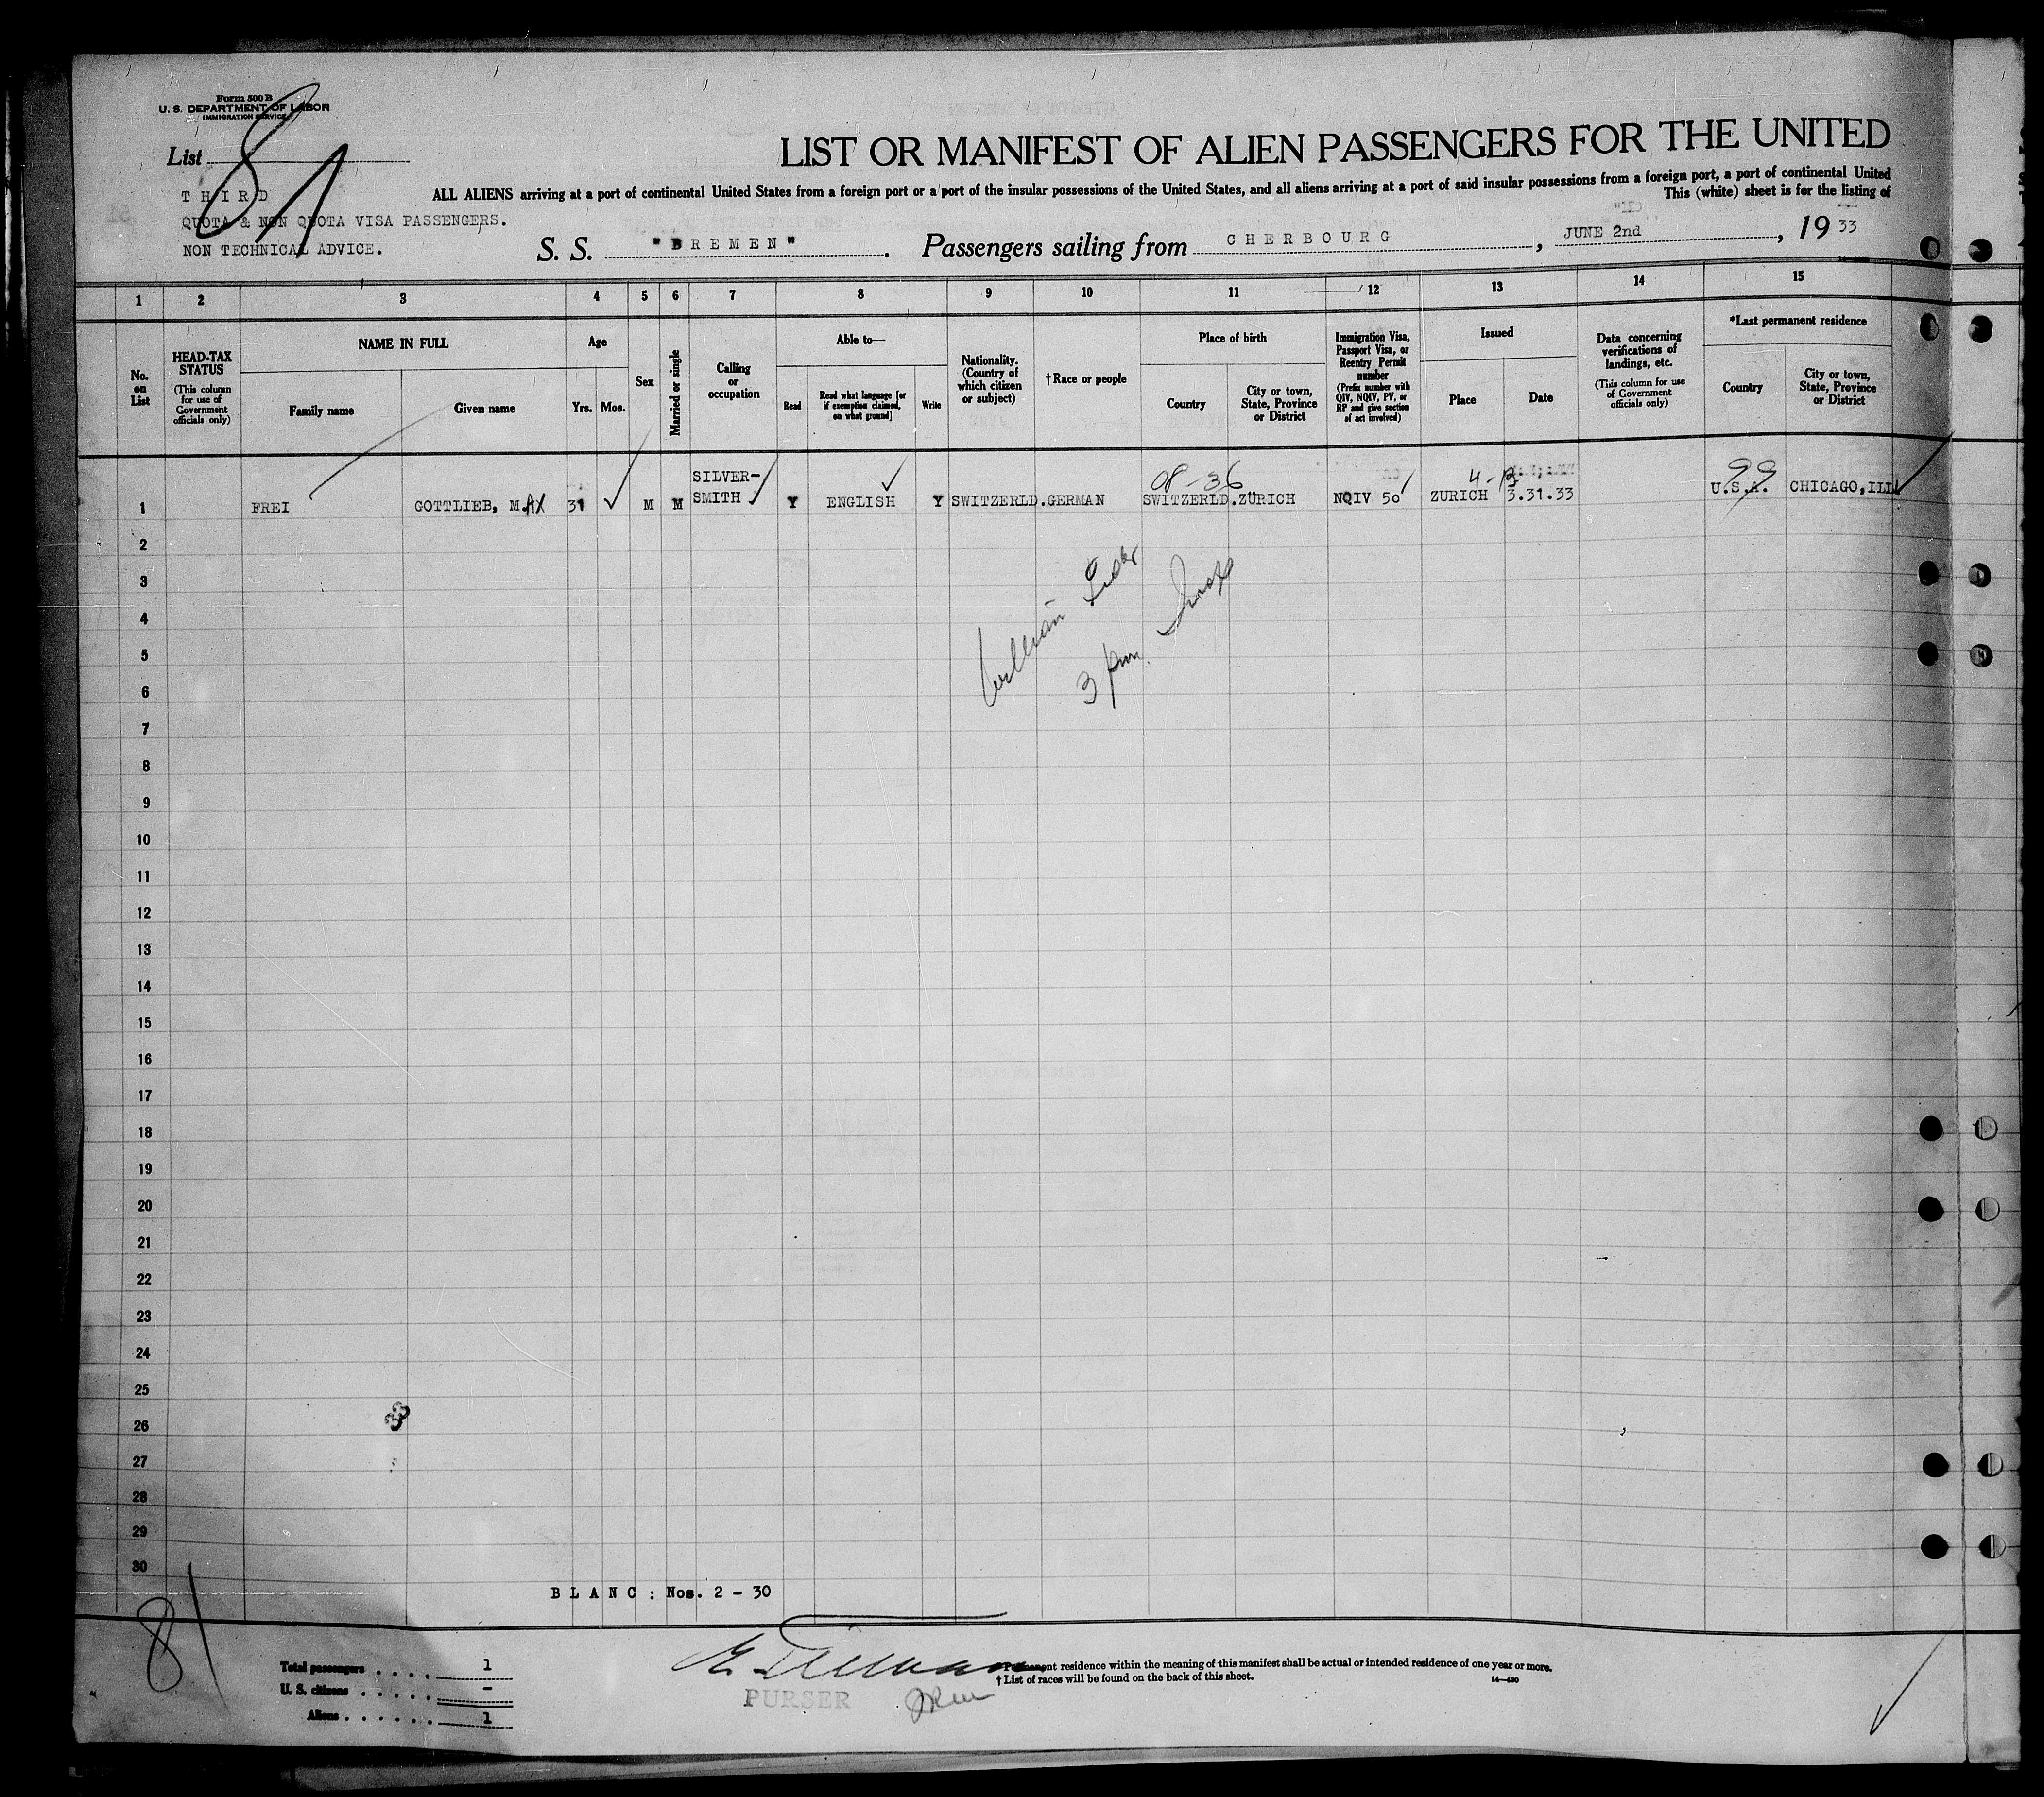 Form 500 B
U. S. DEPARTMENT OF LABOR
IMMIGRATION SERVICE
List 81
THIRD
QUOTA & NON QUOTA VISA PASSENGERS.
NON TECHNICAL ADVICE.
LIST OR MANIFEST OF ALIEN PASSENGERS FOR THE UNITED
ALL ALIENS arriving at a port of continental United States from a foreign port or a port of the insular possessions of the United States, and all aliens arriving at a port of said insular possessions from a foreign port, a port of continental United
This (white) sheet is for the listing of
S. S. "BREMEN". Passengers sailing from CHERBOURG, JUNE 2nd, 1933
1 2 3 4 5 6 7 8 9 10 11 12 13 14 15
No. on List
HEAD-TAX STATUS (This column for use of Government officials only)
NAME IN FULL
Family name
Given name
Age
Yrs. Mos.
Sex
Married or single
Calling or occupation
Able to—
Read
Read what language [or if exemption claimed, on what ground]
Write
Nationality. (Country of which citizen or subject)
†Race or people
Place of birth
Country
City or town, State, Province or District
Immigration Visa, Passport Visa, or Reentry Permit number (Prefix number with QIV, NQIV, PV, or RP and give section of act involved)
Issued
Place
Date
Data concerning verifications of landings, etc. (This column for use of Government officials only)
*Last permanent residence
Country
City or town, State, Province or District
08-36 4-13 99
1 FREI GOTTLIEB, MAX 31 M M SILVER-SMITH Y ENGLISH Y SWITZERLD. GERMAN SWITZERLD. ZURICH NQIV 50 ZURICH 3.31.33 U.S.A. CHICAGO, ILL
2
3
4
5
6
7
8
9
10
11
12
13
14
15
16
17
18
19
20
21
22
23
24
25
26
27
28
29
30
William
3 pm.
33
BLANC: Nos. 2 - 30
81
Total passengers . . . . 1
U. S. citizens . . . . . -
Aliens . . . . . . 1
PURSER
*Permanent residence within the meaning of this manifest shall be actual or intended residence of one year or more.
† List of races will be found on the back of this sheet.
14—430